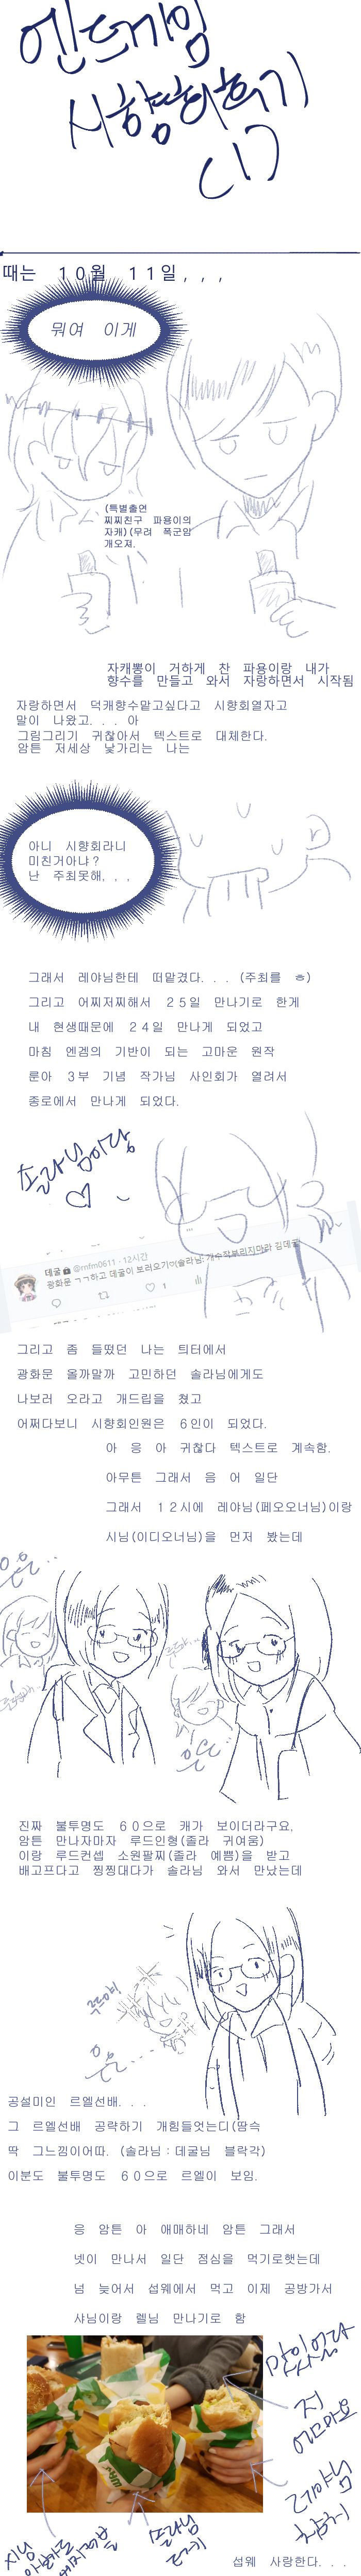 엔드게임
시향회후기
(1)
때는 10월 11일,,,
뭐여 이게
(특별출연
찌찌친구 파용이의
자캐)(무려 폭군임
개오져.
자캐뽕이 거하게 찬 파용이랑 내가
향수를 만들고 와서 자랑하면서 시작됨
자랑하면서 덕캐향수맡고싶다고 시향회열자고
말이 나왔고... 아
그림그리기 귀찮아서 텍스트로 대체한다.
암튼 저세상 낯가리는 나는
아니 시향회라니
미친거아냐?
난 주최못해...
그래서 레야님한테 떠맡겼다... (주최를 ㅎ)
그리고 어찌저찌해서 25일 만나기로 한게
내 현생때문에 24일 만나게 되었고
마침 엔겜의 기반이 되는 고마운 원작
룬아 3부 기념 작가님 사인회가 열려서
종로에서 만나게 되었다.
솔라님이랑
데굴 @rnfm0611 · 12시간
광화문 ㄱㄱ하고 데굴이 보러오기이(솔라님: 개수작부리지마라 김데굴
1
그리고 좀 들떴던 나는 틔터에서
광화문 올까말까 고민하던 솔라님에게도
나보러 오라고 개드립을 쳤고
어쩌다보니 시향회인원은 6인이 되었다.
아 응 아 귀찮다 텍스트로 계속함.
아무튼 그래서 음 어 일단
그래서 12시에 레야님(페오오너님)이랑
시님(이디오너님)을 먼저 봤는데
진짜 불투명도 60으로 캐가 보이더라구요.
암튼 만나자마자 루드인형(졸라 귀여움)
이랑 루드컨셉 소원팔찌(졸라 예쁨)을 받고
배고프다고 찡찡대다가 솔라님 와서 만났는데
공설미인 르엘선배...
그 르엘선배 공략하기 개힘들엇는디(땀슥
딱 그느낌이어따. (솔라님:데굴님 블락각)
이분도 불투명도 60으로 르엘이 보임.
응 암튼 아 애매하네 암튼 그래서
넷이 만나서 일단 점심을 먹기로햇는데
넘 늦어서 섭웨에서 먹고 이제 공방가서
샤님이랑 렐님 만나기로 함
맛있었다
레야님
시님
솔라님
섭웨 사랑한다...